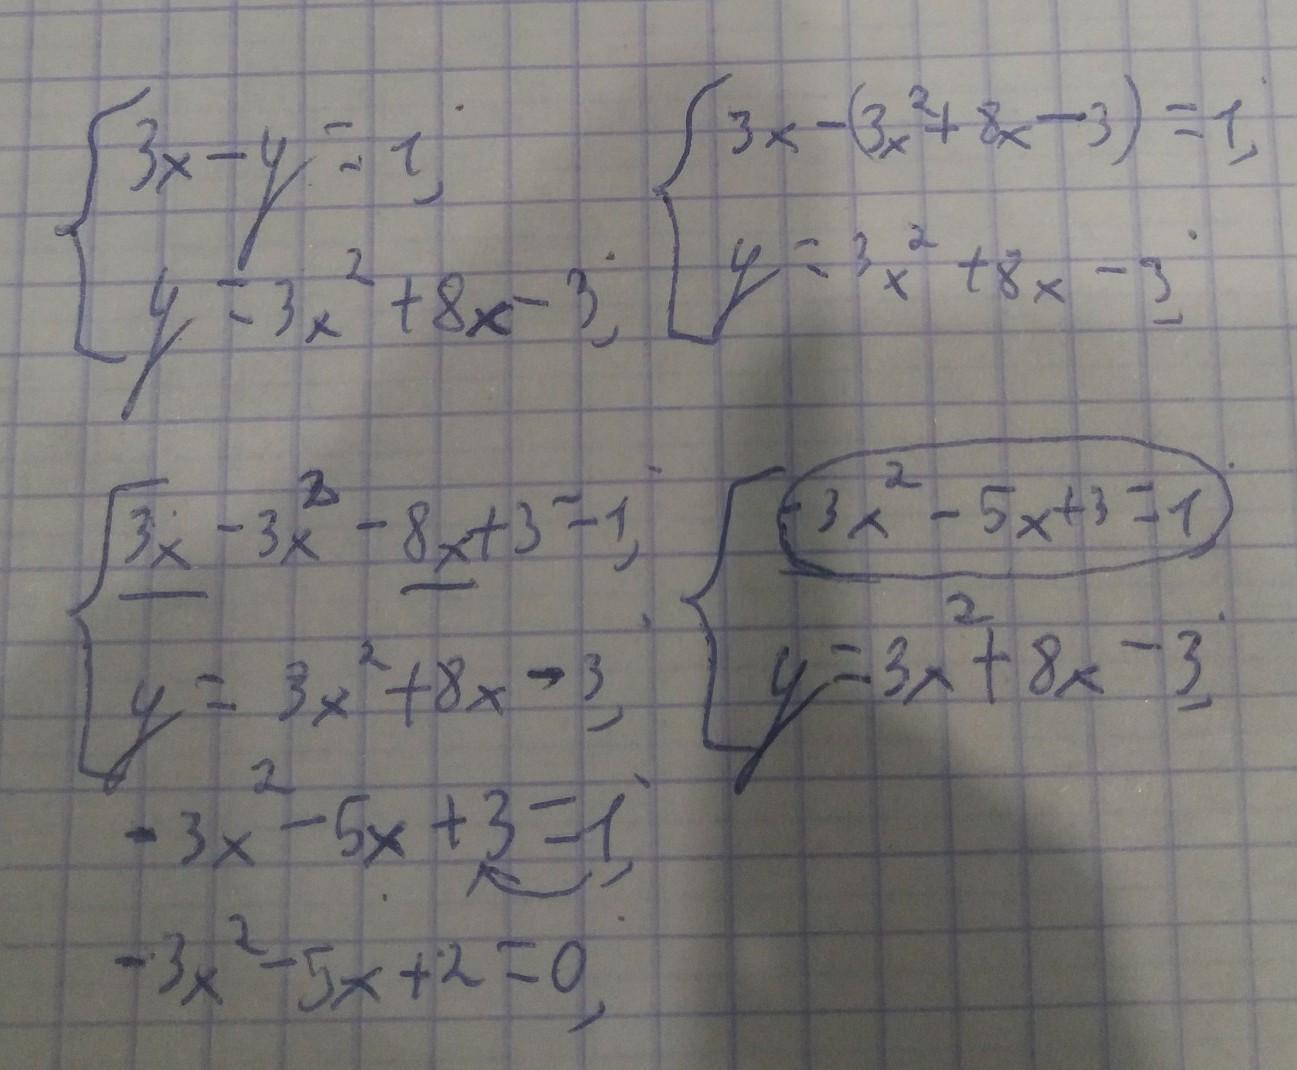 3x - y = 1;
y = 3x² + 8x - 3;
3x - (3x² + 8x - 3) = 1;
y = 3x² + 8x - 3;
3x - 3x² - 8x + 3 = 1;
y = 3x² + 8x - 3;
-3x² - 5x + 3 = 1;
y = 3x² + 8x - 3;
-3x² - 5x + 3 = 1;
-3x² - 5x + 2 = 0;